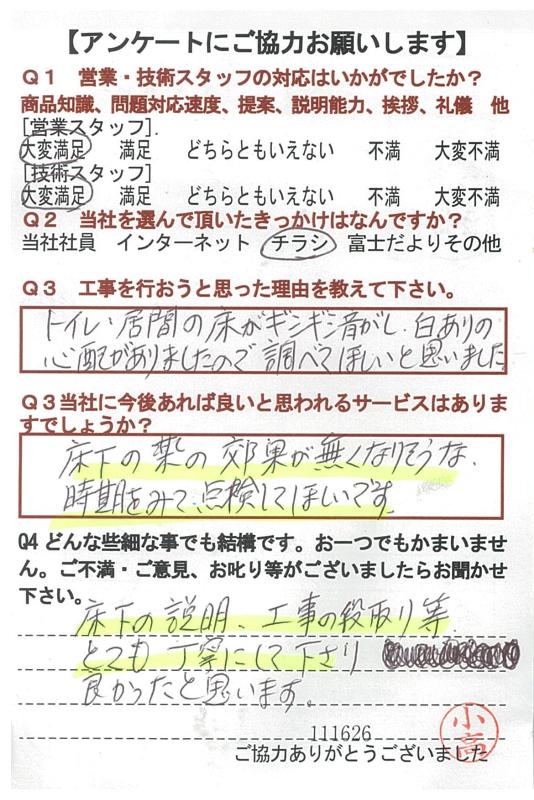 【アンケートにご協力お願いします】
Q1 営業・技術スタッフの対応はいかがでしたか？
商品知識、問題対応速度、提案、説明能力、挨拶、礼儀 他
[営業スタッフ].
大変満足 満足 どちらともいえない 不満 大変不満
[技術スタッフ]
大変満足 満足 どちらともいえない 不満 大変不満
Q2 当社を選んで頂いたきっかけはなんですか？
当社社員 インターネット チラシ 富士だよりその他
Q3 工事を行おうと思った理由を教えて下さい。
トイレ・居間の床がギシギシ音がし、白ありの
心配がありましたので調べてほしいと思いました
Q3当社に今後あれば良いと思われるサービスはありま
すでしょうか？
床下の薬の効果が無くなりそうな、
時期をみて、点検してほしいです。
Q4 どんな些細な事でも結構です。お一つでもかまいませ
ん。ご不満・ご意見、お叱り等がございましたらお聞かせ
下さい。
床下の説明、工事の段取り等
とても丁寧にして下さり
良かったと思います。
111626
小高
ご協力ありがとうございました